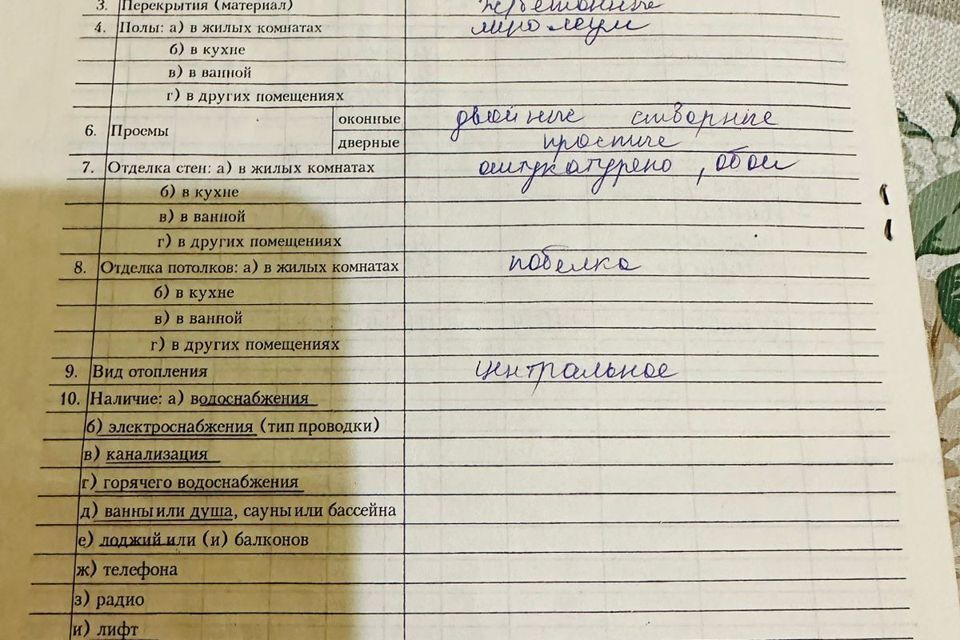 3. Перекрытия (материал)
4. Полы: а) в жилых комнатах
б) в кухне
в) в ванной
г) в других помещениях
6. Проемы оконные двойные створные
дверные простые
7. Отделка стен: а) в жилых комнатах оштукатурено, обои
б) в кухне
в) в ванной
г) в других помещениях
8. Отделка потолков: а) в жилых комнатах побелка
б) в кухне
в) в ванной
г) в других помещениях
9. Вид отопления центральное
10. Наличие: а) водоснабжения
б) электроснабжения (тип проводки)
в) канализация
г) горячего водоснабжения
д) ванны или душа, сауны или бассейна
е) лоджий или (и) балконов
ж) телефона
з) радио
и) лифт